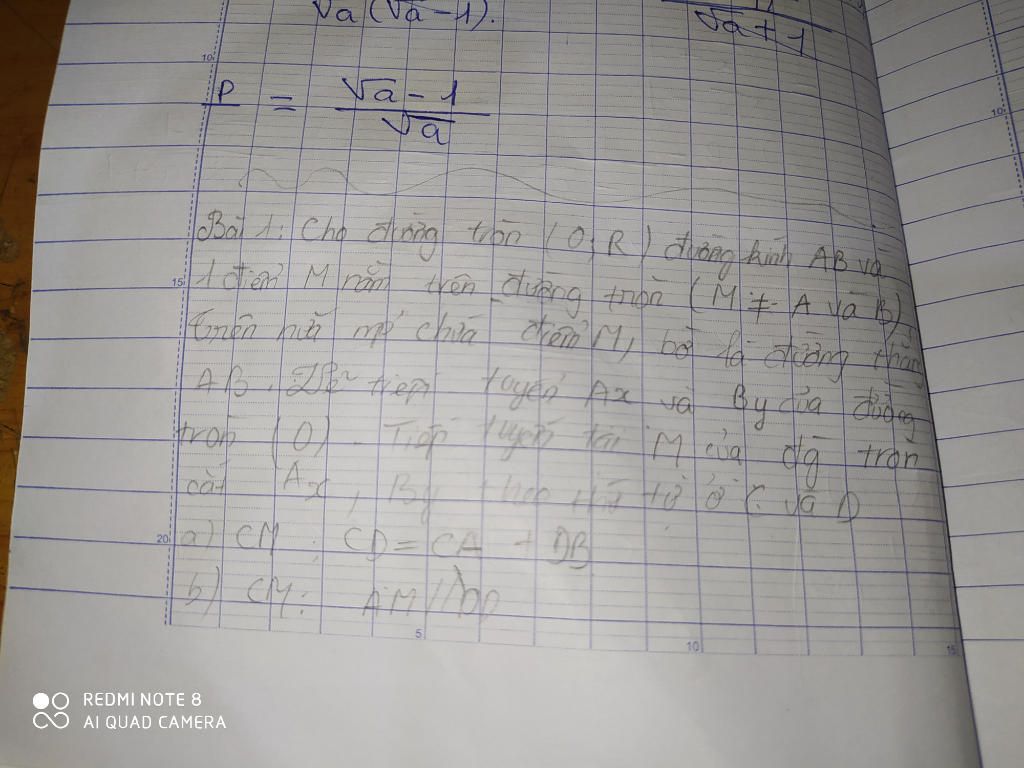 √a(√a-1).
√a+1
P = √a-1 / √a
Bài 1: Cho đường tròn (O; R) đường kính AB và
1 điểm M nằm trên đường tròn (M ≠ A và B)
Trên nửa mp chứa điểm M, bờ là đường thẳng
AB. Vẽ tiếp tuyến Ax và By của đường
tròn (O). Tiếp tuyến tại M của đg tròn
cắt Ax, By theo thứ tự ở C và D
a) CM: CD = CA + DB
b) CM: AM // OD
10
15
20
5
10
15
10
REDMI NOTE 8
AI QUAD CAMERA